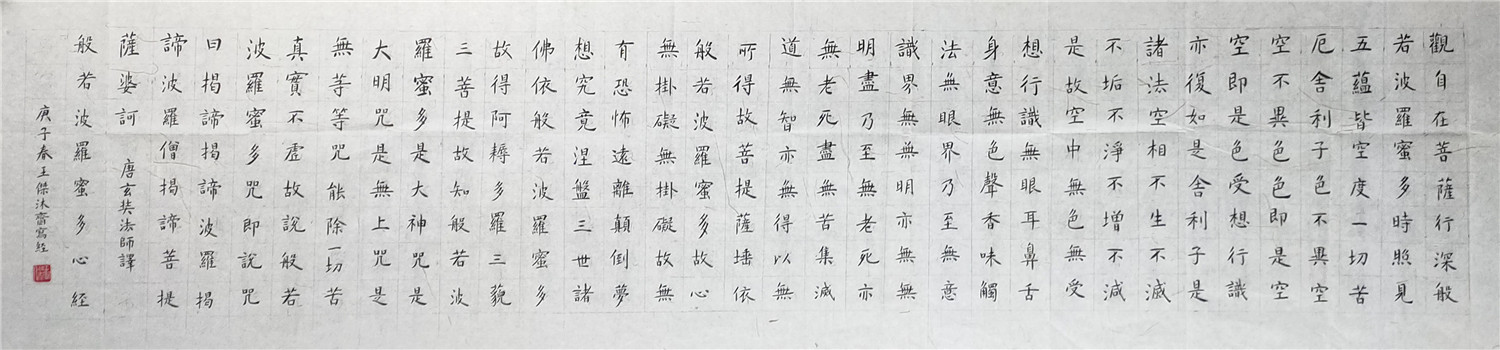 觀自在菩薩行深般
若波羅蜜多時照見
五蘊皆空度一切苦
厄舍利子色不異空
空不異色色即是空
空即是色受想行識
亦復如是舍利子是
諸法空相不生不滅
不垢不淨不增不減
是故空中無色無受
想行識無眼耳鼻舌
身意無色聲香味觸
法無眼界乃至無意
識界無無明亦無無
明盡乃至無老死亦
無老死盡無苦集滅
道無智亦無得以無
所得故菩提薩埵依
般若波羅蜜多故心
無掛礙無掛礙故無
有恐怖遠離顛倒夢
想究竟涅盤三世諸
佛依般若波羅蜜多
故得阿耨多羅三藐
三菩提故知般若波
羅蜜多是大神咒是
大明咒是無上咒是
無等等咒能除一切苦
真實不虛故說般若
波羅蜜多咒即說咒
曰揭諦揭諦波羅揭
諦波羅僧揭諦菩提
薩婆訶 唐玄奘法師譯
般若波羅蜜多心經
庚子春王傑沐齋寫經